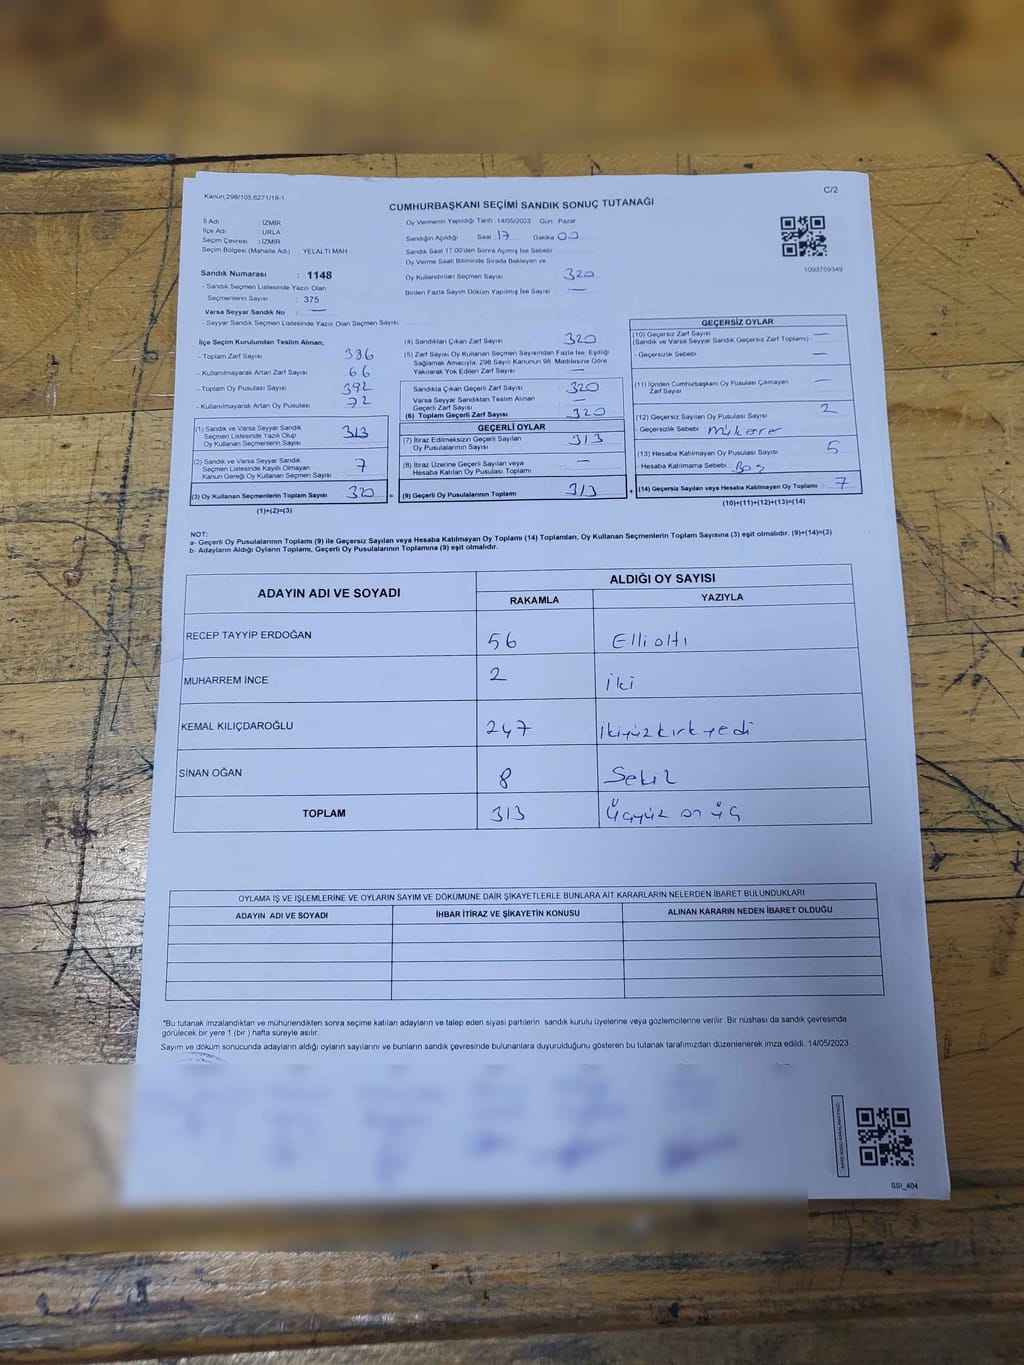 Kanun:298/105,6271/18-1
C/2
CUMHURBAŞKANI SEÇİMİ SANDIK SONUÇ TUTANAĞI
İl Adı : İZMİR
İlçe Adı : URLA
Seçim Çevresi : İZMİR
Seçim Bölgesi (Mahalle Adı) : YELALTI MAH
Sandık Numarası : 1148
- Sandık Seçmen Listesinde Yazılı Olan
Seçmenlerin Sayısı : 375
Varsa Seyyar Sandık No : —
- Seyyar Sandık Seçmen Listesinde Yazılı Olan Seçmen Sayısı
Oy Vermenin Yapıldığı Tarih :14/05/2023 Gün : Pazar
Sandığın Açıldığı Saat 17 Dakika 00
Sandık Saat 17:00'den Sonra Açılmış İse Sebebi
Oy Verme Saati Bitiminde Sırada Bekleyen ve
Oy Kullandırılan Seçmen Sayısı 320
Birden Fazla Sayım Döküm Yapılmış İse Sayısı —
1093759349
İlçe Seçim Kurulundan Teslim Alınan;
- Toplam Zarf Sayısı 386
- Kullanılmayarak Artan Zarf Sayısı 66
- Toplam Oy Pusulası Sayısı 392
- Kullanılmayarak Artan Oy Pusulası 72
(1) Sandık ve Varsa Seyyar Sandık
Seçmen Listesinde Yazılı Olup
Oy Kullanan Seçmenlerin Sayısı 313
(2) Sandık ve Varsa Seyyar Sandık
Seçmen Listesinde Kayıtlı Olmayan
Kanun Gereği Oy Kullanan Seçmen Sayısı 7
(3) Oy Kullanan Seçmenlerin Toplam Sayısı 320
(1)+(2)=(3)
(4) Sandıktan Çıkan Zarf Sayısı 320
(5) Zarf Sayısı Oy Kullanan Seçmen Sayısından Fazla İse, Eşitliği
Sağlamak Amacıyla, 298 Sayılı Kanunun 98. Maddesine Göre
Yakılarak Yok Edilen Zarf Sayısı —
Sandıkta Çıkan Geçerli Zarf Sayısı 320
Varsa Seyyar Sandıktan Teslim Alınan
Geçerli Zarf Sayısı —
(6) Toplam Geçerli Zarf Sayısı 320
GEÇERLİ OYLAR
(7) İtiraz Edilmeksizin Geçerli Sayılan
Oy Pusulalarının Sayısı 313
(8) İtiraz Üzerine Geçerli Sayılan veya
Hesaba Katılan Oy Pusulası Toplamı —
= (9) Geçerli Oy Pusulalarının Toplamı 313
GEÇERSİZ OYLAR
(10) Geçersiz Zarf Sayısı
(Sandık ve Varsa Seyyar Sandık Geçersiz Zarf Toplamı) : —
- Geçersizlik Sebebi —
(11) İçinden Cumhurbaşkanı Oy Pusulası Çıkmayan
Zarf Sayısı —
(12) Geçersiz Sayılan Oy Pusulası Sayısı 2
- Geçersizlik Sebebi Mükerer
(13) Hesaba Katılmayan Oy Pusulası Sayısı 5
- Hesaba Katılmama Sebebi Boş
+ (14) Geçersiz Sayılan veya Hesaba Katılmayan Oy Toplamı 7
(10)+(11)+(12)+(13)=(14)
NOT:
a- Geçerli Oy Pusulalarının Toplamı (9) ile Geçersiz Sayılan veya Hesaba Katılmayan Oy Toplamı (14) Toplamları, Oy Kullanan Seçmenlerin Toplam Sayısına (3) eşit olmalıdır. (9)+(14)=(3)
b- Adayların Aldığı Oyların Toplamı, Geçerli Oy Pusulalarının Toplamına (9) eşit olmalıdır.
ADAYIN ADI VE SOYADI ALDIĞI OY SAYISI
RAKAMLA YAZIYLA
RECEP TAYYİP ERDOĞAN 56 Elli altı
MUHARREM İNCE 2 iki
KEMAL KILIÇDAROĞLU 247 İkiyüzkırkyedi
SİNAN OĞAN 8 Sekiz
TOPLAM 313 Üçyüz on üç
OYLAMA İŞ VE İŞLEMLERİNE VE OYLARIN SAYIM VE DÖKÜMÜNE DAİR ŞİKAYETLERLE BUNLARA AİT KARARLARIN NELERDEN İBARET BULUNDUKLARI
ADAYIN ADI VE SOYADI İHBAR İTİRAZ VE ŞİKAYETİN KONUSU ALINAN KARARIN NEDEN İBARET OLDUĞU
*Bu tutanak imzalandıktan ve mühürlendikten sonra seçime katılan adayların ve talep eden siyasi partilerin sandık kurulu üyelerine veya gözlemcilerine verilir. Bir nüshası da sandık çevresinde
görülecek bir yere 1 (bir ) hafta süreyle asılır.
Sayım ve döküm sonucunda adayların aldığı oyların sayılarını ve bunların sandık çevresinde bulunanlara duyurulduğunu gösteren bu tutanak tarafımızdan düzenlenerek imza edildi. 14/05/2023
SSI_404